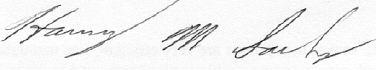 Harry M Sachs